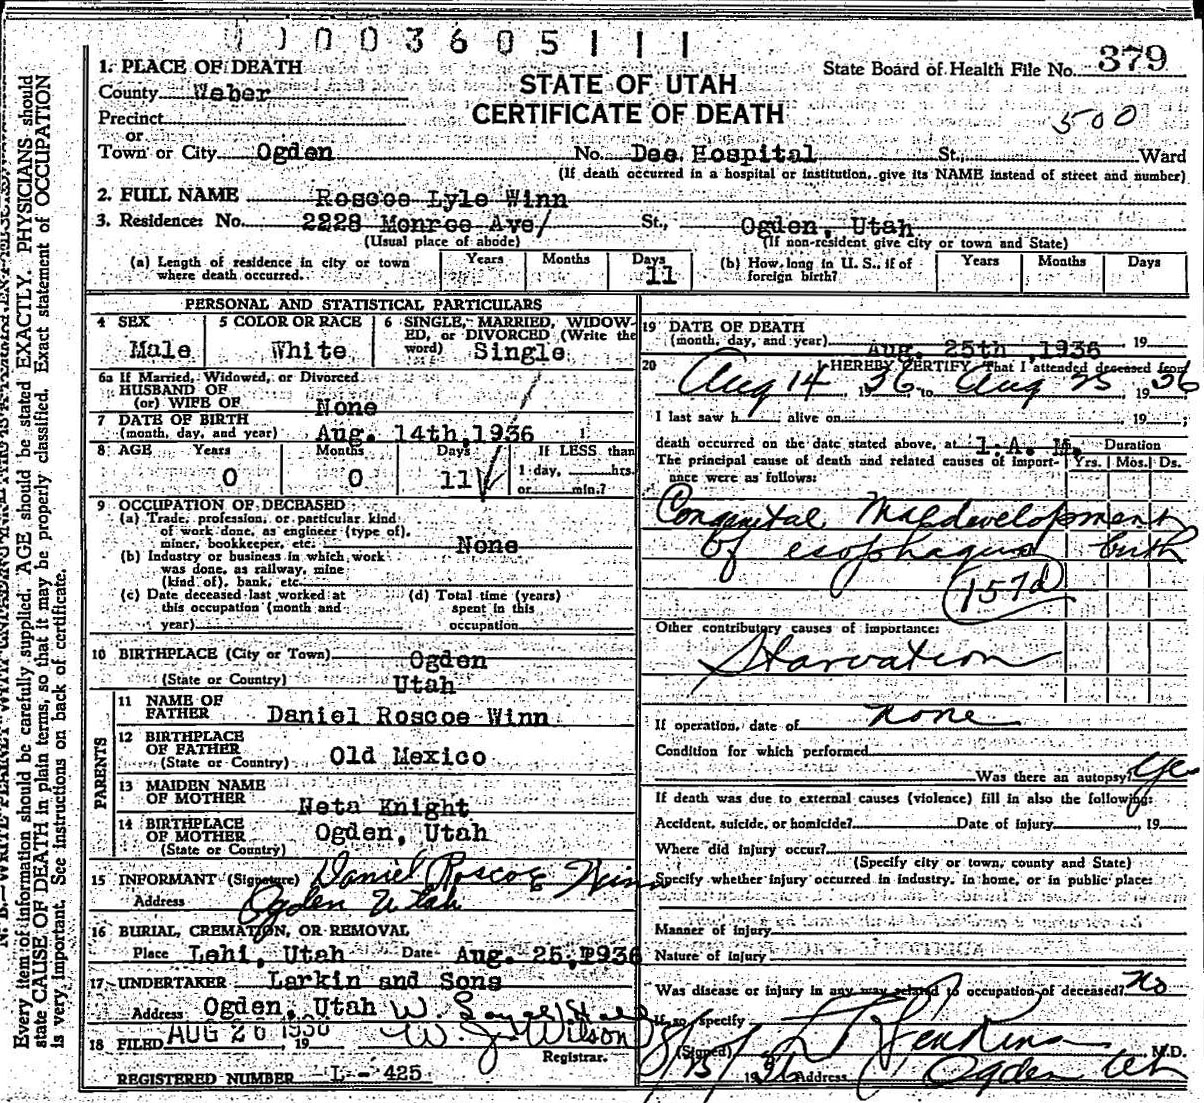 0003605111
1. PLACE OF DEATH
County Weber
STATE OF UTAH
CERTIFICATE OF DEATH
State Board of Health File No. 379
500
Precinct
or
Town or City Ogden No. Dee Hospital St., Ward
(If death occurred in a hospital or institution, give its NAME instead of street and number)
2. FULL NAME Roscoe Lyle Winn
3. Residence: No. 2228 Monroe Ave/ St., Ogden, Utah
(Usual place of abode) (If non-resident give city or town and State)
(a) Length of residence in city or town where death occurred. Years Months Days 11
(b) How long in U. S., if of foreign birth? Years Months Days
PERSONAL AND STATISTICAL PARTICULARS
4 SEX Male
5 COLOR OR RACE White
6 SINGLE, MARRIED, WIDOWED, or DIVORCED (Write the word) Single
6a If Married, Widowed, or Divorced
HUSBAND OF
(or) WIFE OF None
7 DATE OF BIRTH
(month, day, and year) Aug. 14th, 1936
8 AGE Years 0 Months 0 Days 11
If LESS than
1 day, hrs.
or min.?
9 OCCUPATION OF DECEASED
(a) Trade, profession, or particular kind
of work done, as engineer (type of),
miner, bookkeeper, etc. None
(b) Industry or business in which work
was done, as railway, mine
(kind of), bank, etc.
(c) Date deceased last worked at
this occupation (month and
year)
(d) Total time (years)
spent in this
occupation
10 BIRTHPLACE (City or Town) Ogden
(State or Country) Utah
PARENTS
11 NAME OF
FATHER Daniel Roscoe Winn
12 BIRTHPLACE
OF FATHER
(State or Country) Old Mexico
13 MAIDEN NAME
OF MOTHER Neta Knight
14 BIRTHPLACE
OF MOTHER Ogden, Utah
(State or Country)
15 INFORMANT (Signature) Daniel Roscoe Winn
Address Ogden Utah
16 BURIAL, CREMATION, OR REMOVAL
Place Lehi, Utah Date Aug. 25, 1936
17 UNDERTAKER Larkin and Sons
Address Ogden, Utah W.
18 FILED AUG 26 1936, 19 W. J. Wilson
Registrar.
REGISTERED NUMBER L - 425
19 DATE OF DEATH
(month, day, and year) Aug. 25th, 1936, 19
20 I HEREBY CERTIFY, That I attended deceased from
Aug 14, 1936 to Aug 25, 1936
I last saw h alive on , 19 ;
death occurred on the date stated above, at 1.A. M. Duration
The principal cause of death and related causes of importance were as follows: Yrs. Mos. Ds.
Congenital Maldevelopment
of esophagus birth
157d
Other contributory causes of importance:
Starvation
If operation, date of none
Condition for which performed
Was there an autopsy? Yes
If death was due to external causes (violence) fill in also the following:
Accident, suicide, or homicide? Date of injury , 19
Where did injury occur?
(Specify city or town, county and State)
Specify whether injury occurred in industry, in home, or in public place:
Manner of injury
Nature of injury
Was disease or injury in any way related to occupation of deceased? No
If so, specify
(Signed) Jenkins M.D.
8/25/1936 Address Ogden Ut
Every item of information should be carefully supplied. AGE should be stated EXACTLY. PHYSICIANS should
state CAUSE OF DEATH in plain terms, so that it may be properly classified. Exact statement of OCCUPATION
is very important. See instructions on back of certificate.